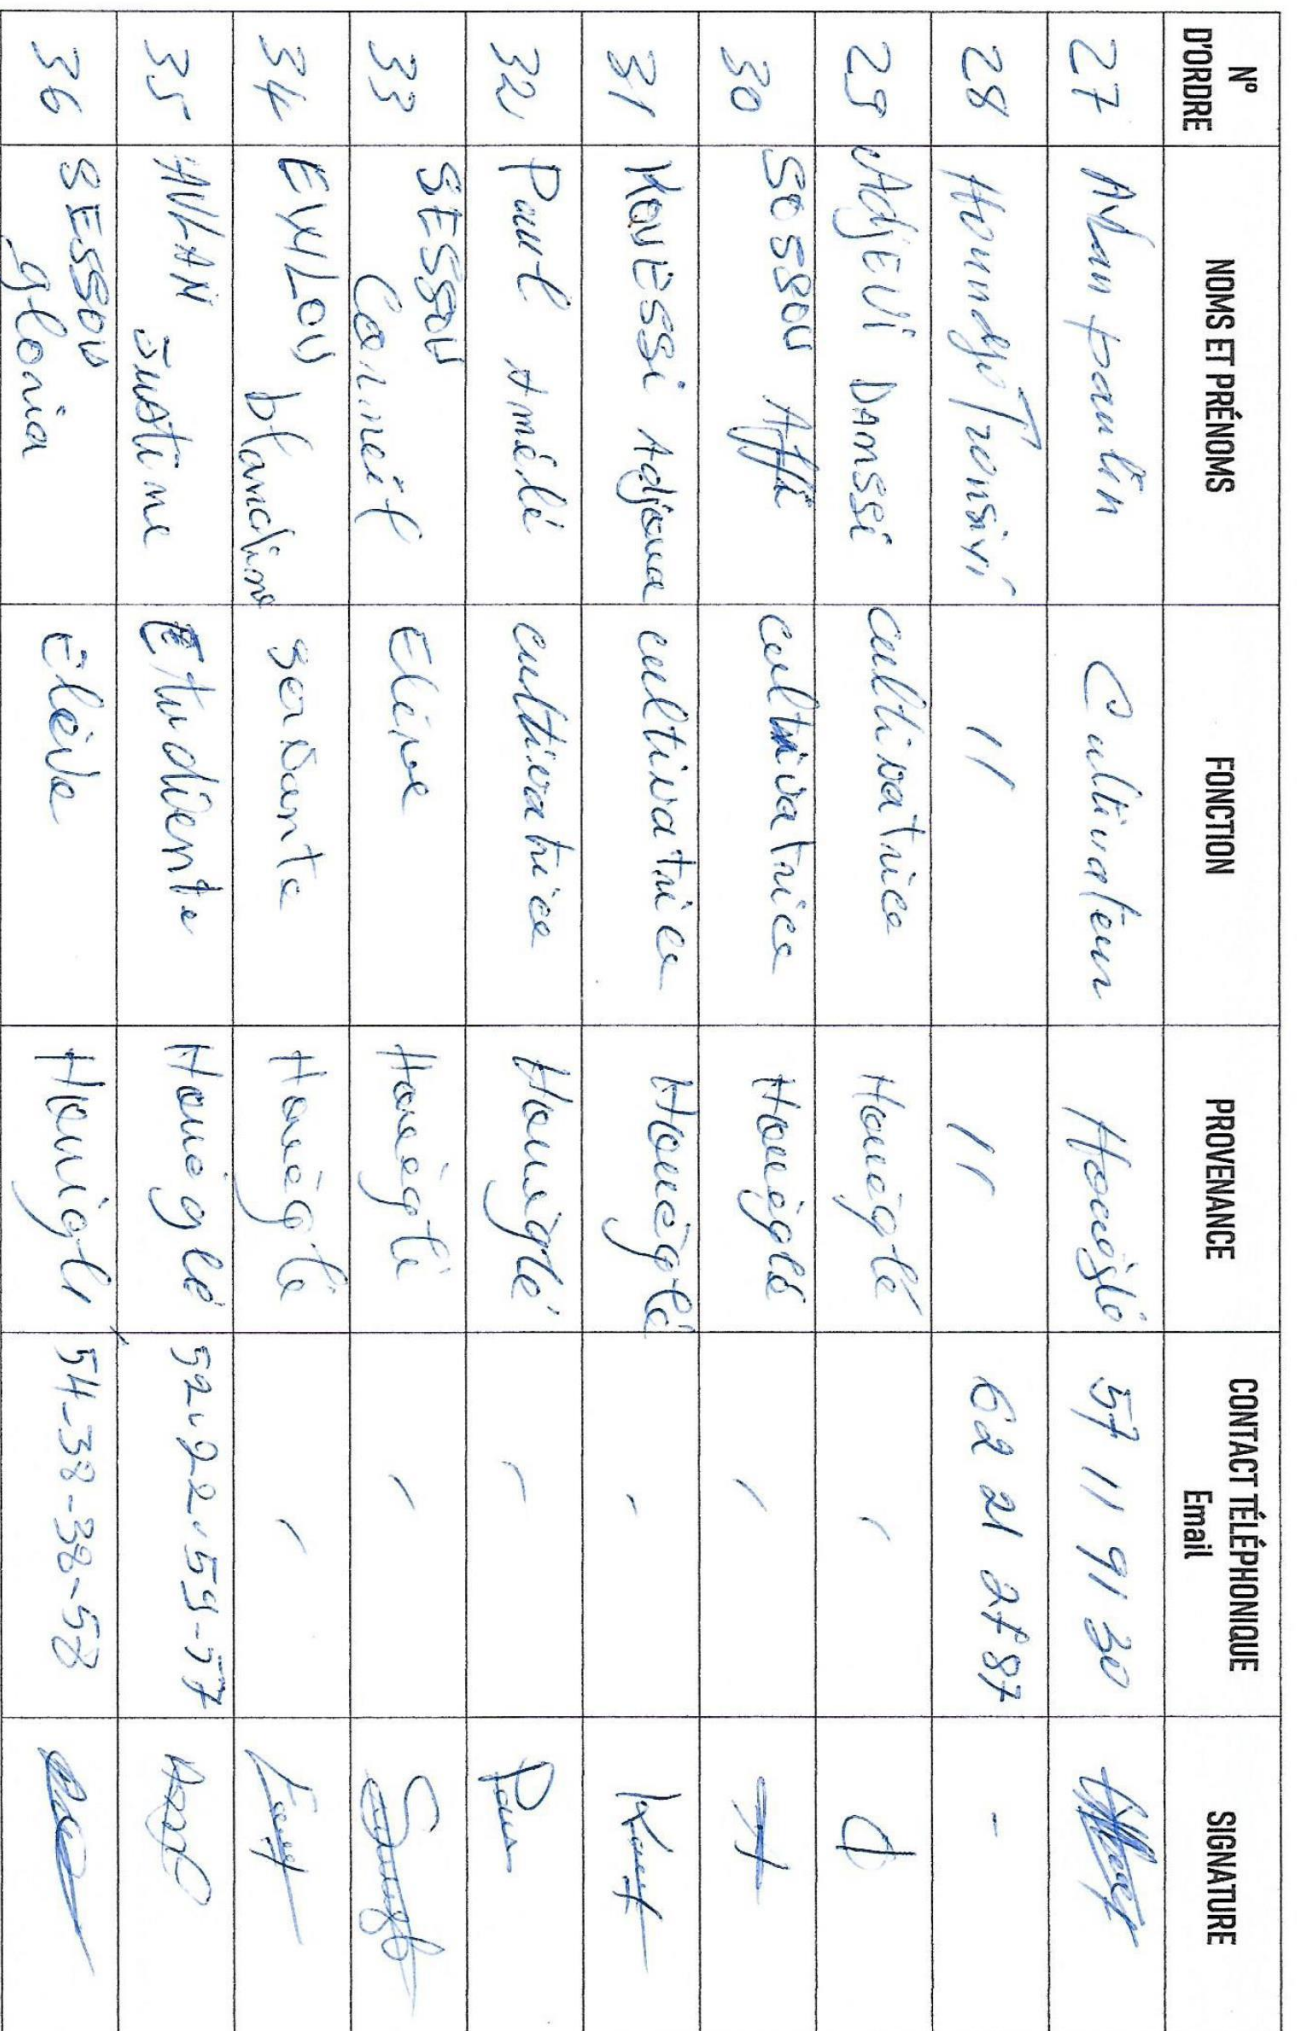 N° D'ORDRE NOMS ET PRÉNOMS FONCTION PROVENANCE CONTACT TÉLÉPHONIQUE Email SIGNATURE
27 Avlan paulin Cultivateur Houéglé 57 11 91 30
28 Houndjo Tronsivi 11 11 62 21 27 87 -
29 AdjEVi DAmssi cultivatrice Houéglé -
30 SOSSOU Affi cultrivatrice Houéglé -
31 KOUESSi Adjoua cultivatrice Houéglé -
32 Paul Amélé cultivatrice Houéglé -
33 SESSOU Corneil Elève Houéglé -
34 blandine servante Houéglé -
35 AVLAN Justine Etudiente Houéglé 52-22-59-57
36 SESSOU gloria Élève 54-38-38-58